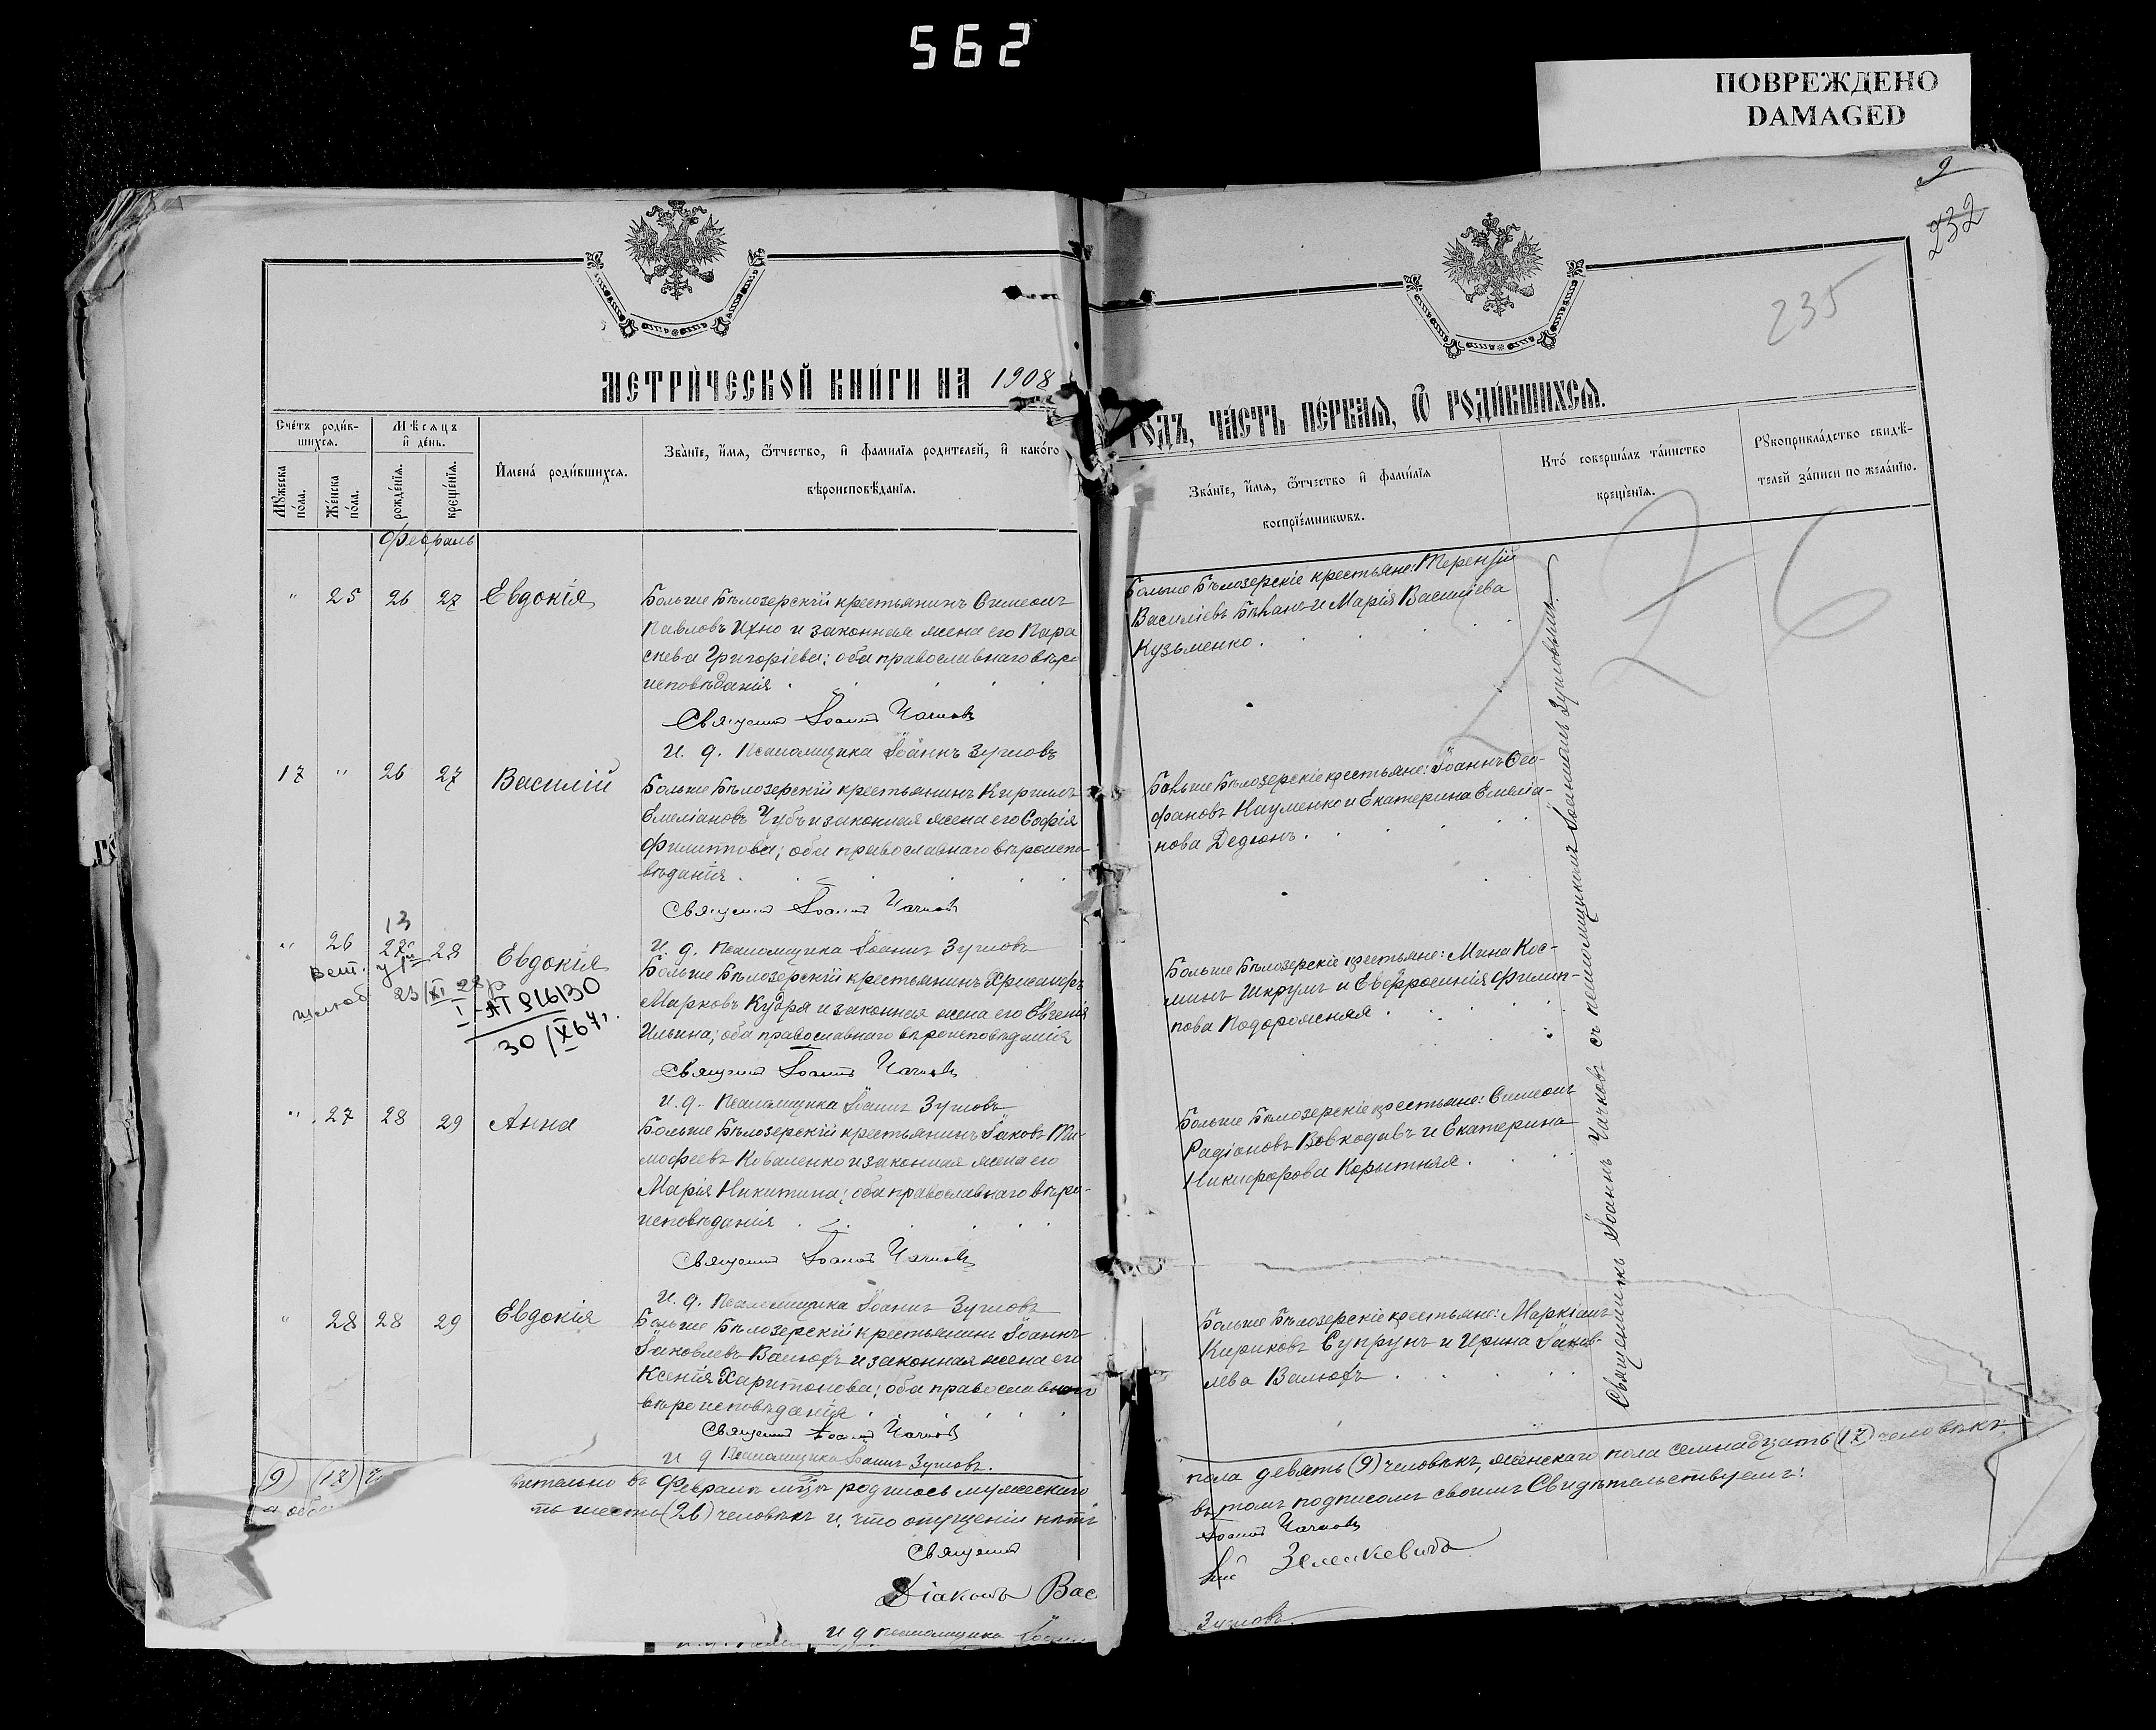 562
ПОВРЕЖДЕНО
DAMAGED
232
235
МЕТРИЧЕСКОЙ КНИГИ НА 1908
ГОДЪ, ЧАСТЬ ПЕРВАЯ, Ѿ РОДИВШИХСЯ.
Счетъ родив-
шихся.
Мѣсяцъ
и день.
Мужеска
пола.
Женска
пола.
рожденія.
крещенія.
Имена родившихся.
Званіе, имя, ѿтчество, и фамилія родителей, и какого
вѣроисповѣданія.
Званіе, имя, ѿтчество и фамилія
воспріемниковъ.
Кто совершалъ таинство
крещенія.
Рукоприкладство свидѣ-
телей записи по желанію.
Февраль
" 25 26 27 Евдокія
Больше Бѣлозерскій крестьянинъ Симеонъ
Павловъ Ихно и законная жена его Пара
скева Григоріева; оба православнаго вѣро
исповѣданія.
Священ Іоаннъ Чачковъ
и. д. Псаломщика Іоаннъ Зугловъ
Больше Бѣлозерскіе крестьяне: Терентій
Василіевъ и Марія Василіева
Кузьменко.
26
17 " 26 27 Василій
Больше Бѣлозерскій крестьянинъ Кириллъ
Емеліановъ Чубъ и законная жена его Софія
Филиппова; оба православнаго вѣроиспо-
вѣданія.
Священ Іоаннъ Чачковъ
и. д. Псаломщика Іоаннъ Зугловъ
Больше Бѣлозерскіе крестьяне: Іоаннъ Ѳео-
фановъ Науменко и Екатерина Емеліа-
нова Дедюнъ.
13
" 26 27 28 Евдокія
I-АП 916130
30/X 67г.
Больше Бѣлозерскій крестьянинъ Хрисанфъ
Марковъ Кудря и законная жена его Евгенія
Ильина; оба православнаго вѣроисповѣданія
Священ Іоаннъ Чачковъ
и. д. Псаломщика Іоаннъ Зугловъ
Больше Бѣлозерскіе крестьяне: Мина Кос-
минъ Шкрумъ и Евфросинія Филип-
пова Подорожняя.
" 27 28 29 Анна
Больше Бѣлозерскій крестьянинъ Іаковъ Ти-
мофеевъ Коваленко и законная жена его
Марія Никитина; оба православнаго вѣро-
исповѣданія.
Священ Іоаннъ Чачковъ
и. д. Псаломщика Іоаннъ Зугловъ
Больше Бѣлозерскіе крестьяне: Симеонъ
Радіоновъ Вовкодавъ и Екатерина
Никифорова Корытняя.
" 28 28 29 Евдокія
Больше Бѣлозерскій крестьянинъ Іоаннъ
Іаковлевъ Валюхъ и законная жена его
Ксенія Харитонова; оба православнаго
вѣроисповѣданія
Священ Іоаннъ Чачковъ
и д Псаломщика Іоаннъ Зугловъ.
Больше Бѣлозерскіе крестьяне: Маркіанъ
Кириковъ Супрунъ и Ирина Іаков-
лева Валюхъ
Священникъ Іоаннъ Чачковъ съ псаломщикомъ Іоанномъ Зугловымъ.
(9) (17)
ительно въ Февралѣ м-цѣ родилось мужескаго
ть шесть (26) человѣкъ и, что опущеній нѣтъ
Священ
Діаконъ Вас
и д псаломщика Іоанн
пола девять (9) человѣкъ, женскаго пола семнадцать (17) человѣкъ
въ томъ подписомъ своимъ Свидѣтельствуемъ:
Іоаннъ Чачковъ
Зеленкевичъ
Зугловъ.